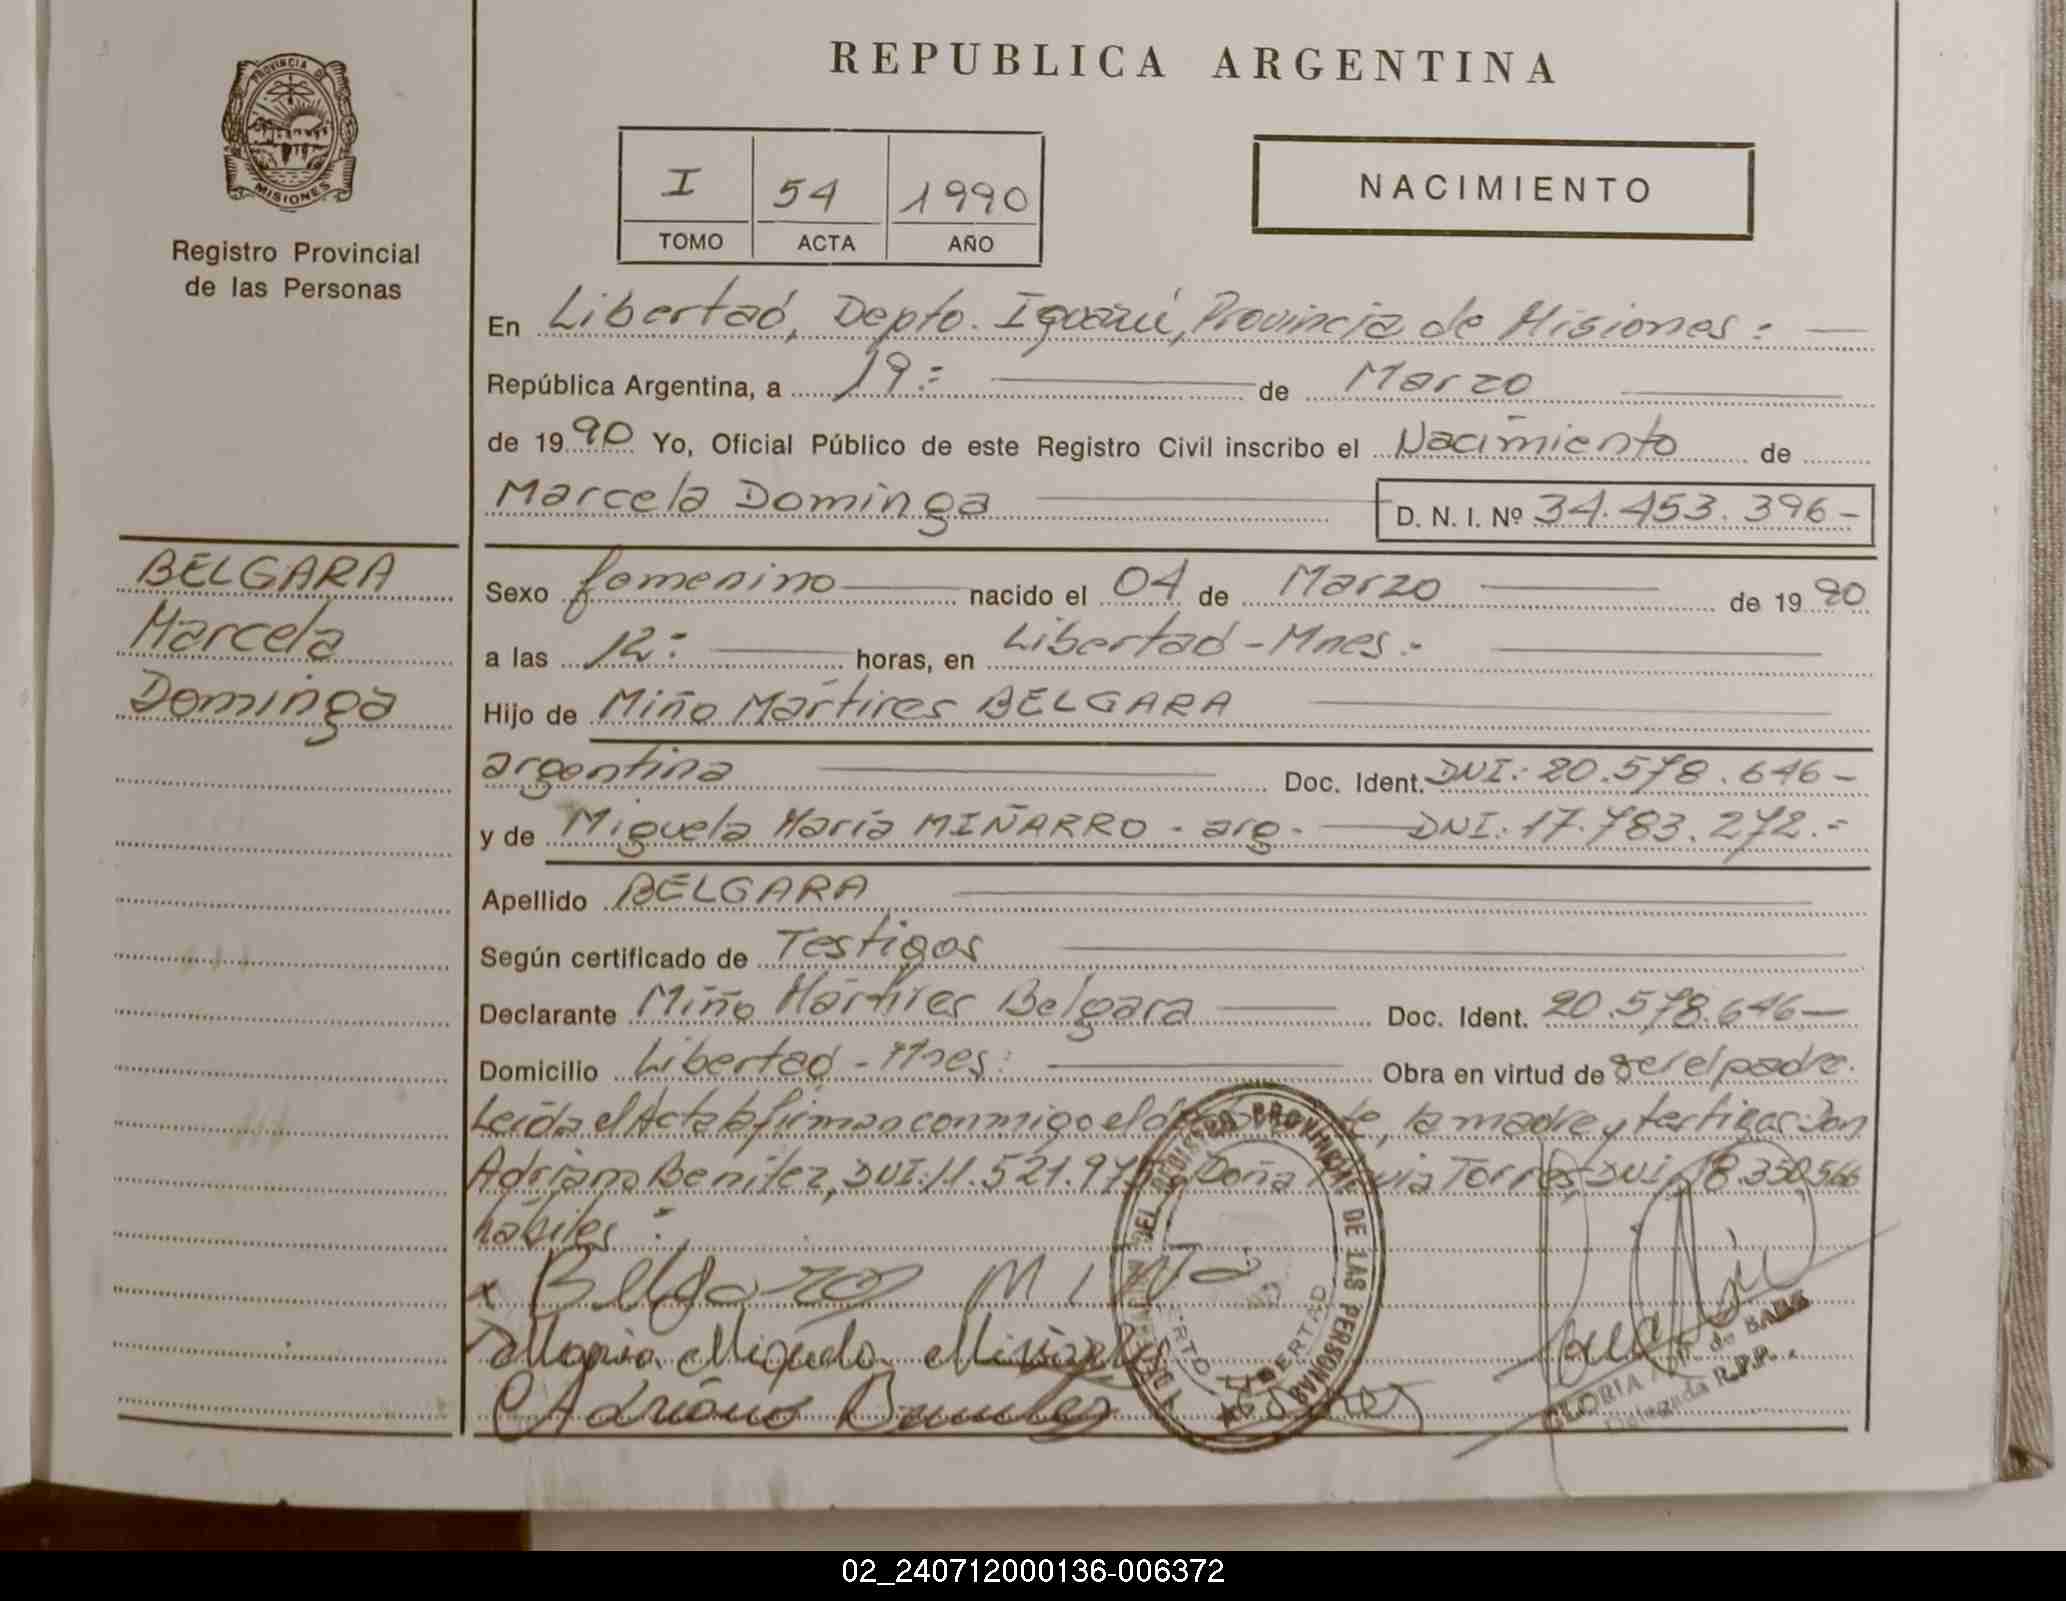 REPUBLICA ARGENTINA
PROVINCIA DE
MISIONES
Registro Provincial
de las Personas
I 54 1990
TOMO ACTA AÑO
NACIMIENTO
En Libertad, Depto. Iguazú, Provincia de Misiones:
República Argentina, a 19.= de Marzo
de 1990 Yo, Oficial Público de este Registro Civil inscribo el Nacimiento de
Marcela Dominga D. N. I. Nº 34.453.396-
BELGARA
Marcela
Dominga
Sexo femenino nacido el 04 de Marzo de 1990
a las 12: horas, en Libertad - Mnes.-
Hijo de Miño Mártires BELGARA
argentina Doc. Ident. DNI: 20.578.646-
y de Miguela María MIÑARRO - arg. DNI: 17.783.272.=
Apellido BELGARA
Según certificado de Testigos
Declarante Miño Mártires Belgara Doc. Ident. 20.578.646-
Domicilio Libertad - Mnes: Obra en virtud de ser el padre.
Leída el Acta la firman conmigo el, la madre y testigos: Don
Adriano Benítez, DNI: 11.521.975 Doña Torres, DNI. 18.350.566
hábiles:
x Belgara Miño
Maria Miguela
Adriano Benitez
DEL REGISTRO PROVINCIAL DE LAS PERSONAS
LIBERTAD
GLORIA de
Delegada R.P.P.
02_240712000136-006372